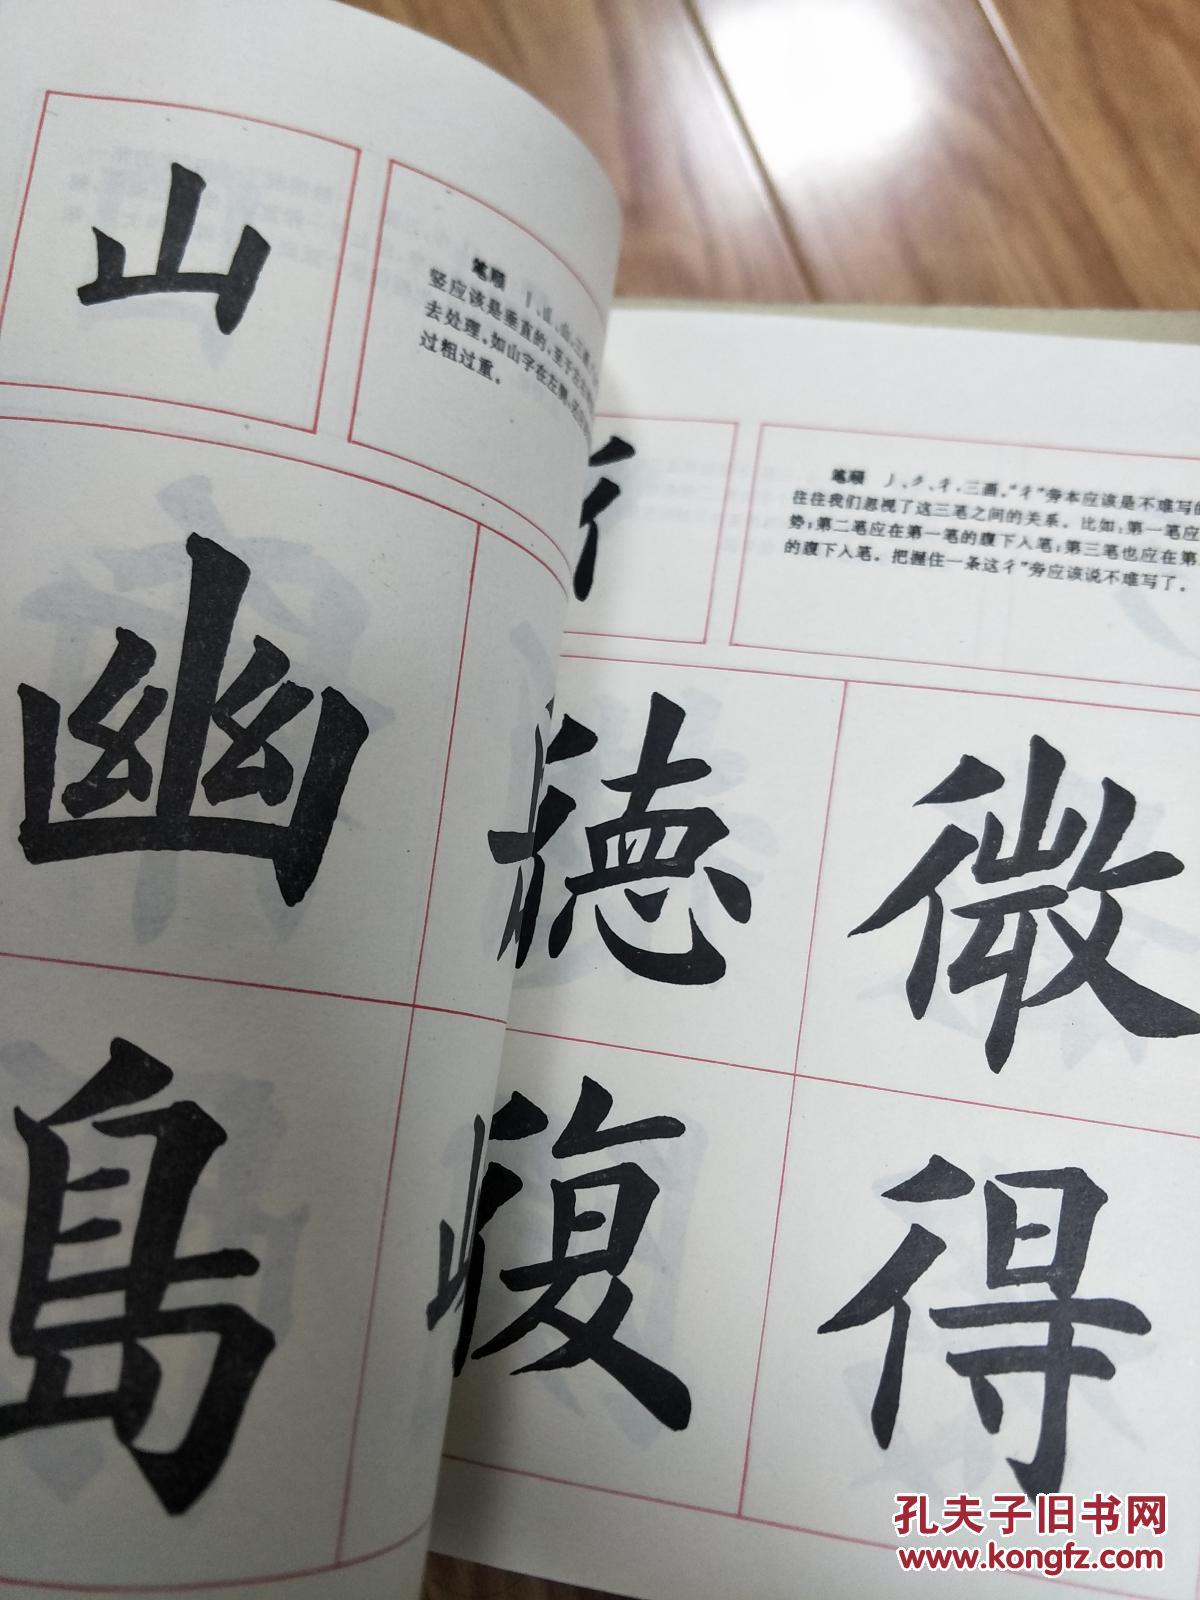 山
笔顺 丨、山、山,三画。
竖应该是垂直的,至于左右
去处理。如山字在左侧,
过粗过重。
幽
島
山
彳
笔顺 丿、彳、彳,三画。“彳”旁本应该是不难写的
往往我们忽视了这三笔之间的关系。比如:第一笔应
势;第二笔应在第一笔的腹下入笔;第三笔也应在第
的腹下入笔。把握住一条这彳”旁应该说不难写了。
德 微
復 得
孔夫子旧书网
www.kongfz.com